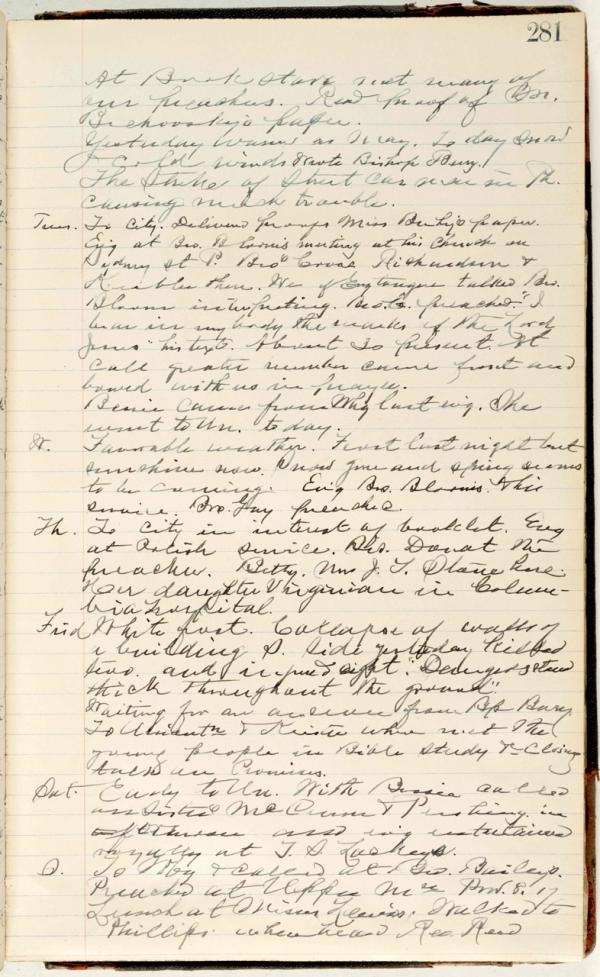 281
At Book store met many of
our preachers. Read proof of Bro.
paper.
Yesterday warm as May. To day snow
& cold winds Wrote Bishop Berry.
The Strike of Street Car men in Ph.
causing much trouble.
Tues. To City. Delivered proofs Miss paper.
Evg at Bro. Bloom's meeting at his Church on
Sydney st P. Bros Richardson &
Keebler there. We of Eng tongue talked Bro.
Bloom interpreting. Bro. preached "I
bear in my body the marks of the Lord
Jesus" his text. About 30 present. At
Call greater number came front and
bowed with us in prayer.
Bessie came from Whg last evg. She
went to Un. to day.
W. Favorable weather. Frost last night but
sunshine now. Snow gone and spring seems
to be coming. Evg Bro. Bloom's this
service. Bro. Guy preached.
Th. To City in interest of booklet. Evg
at Polish service. Bro. Donat the
preacher. Betty, Mrs J. T. here.
Her daughter Virginian in Colum-
bia hospital.
Frid White frost. Collapse of walls of
a building S. Side yesterday killed
two. and injured eight. "Dangers stand
thick throughout the ground".
Waiting for an answer from Bp Berry
To & where met the
young people in Bible study & closing
talk on Promises.
Sat. Early to Un. With Bessie called
on Sister McCrum & Pershing in
afternoon and evg entertained
royally at T. S. Lackeys.
S. To & called at Geo. Baileys.
Preached at Upper Mc Prov. 8. 17
Lunch at Misses Lewis. Walked to
Phillips where heard Rev. Reed